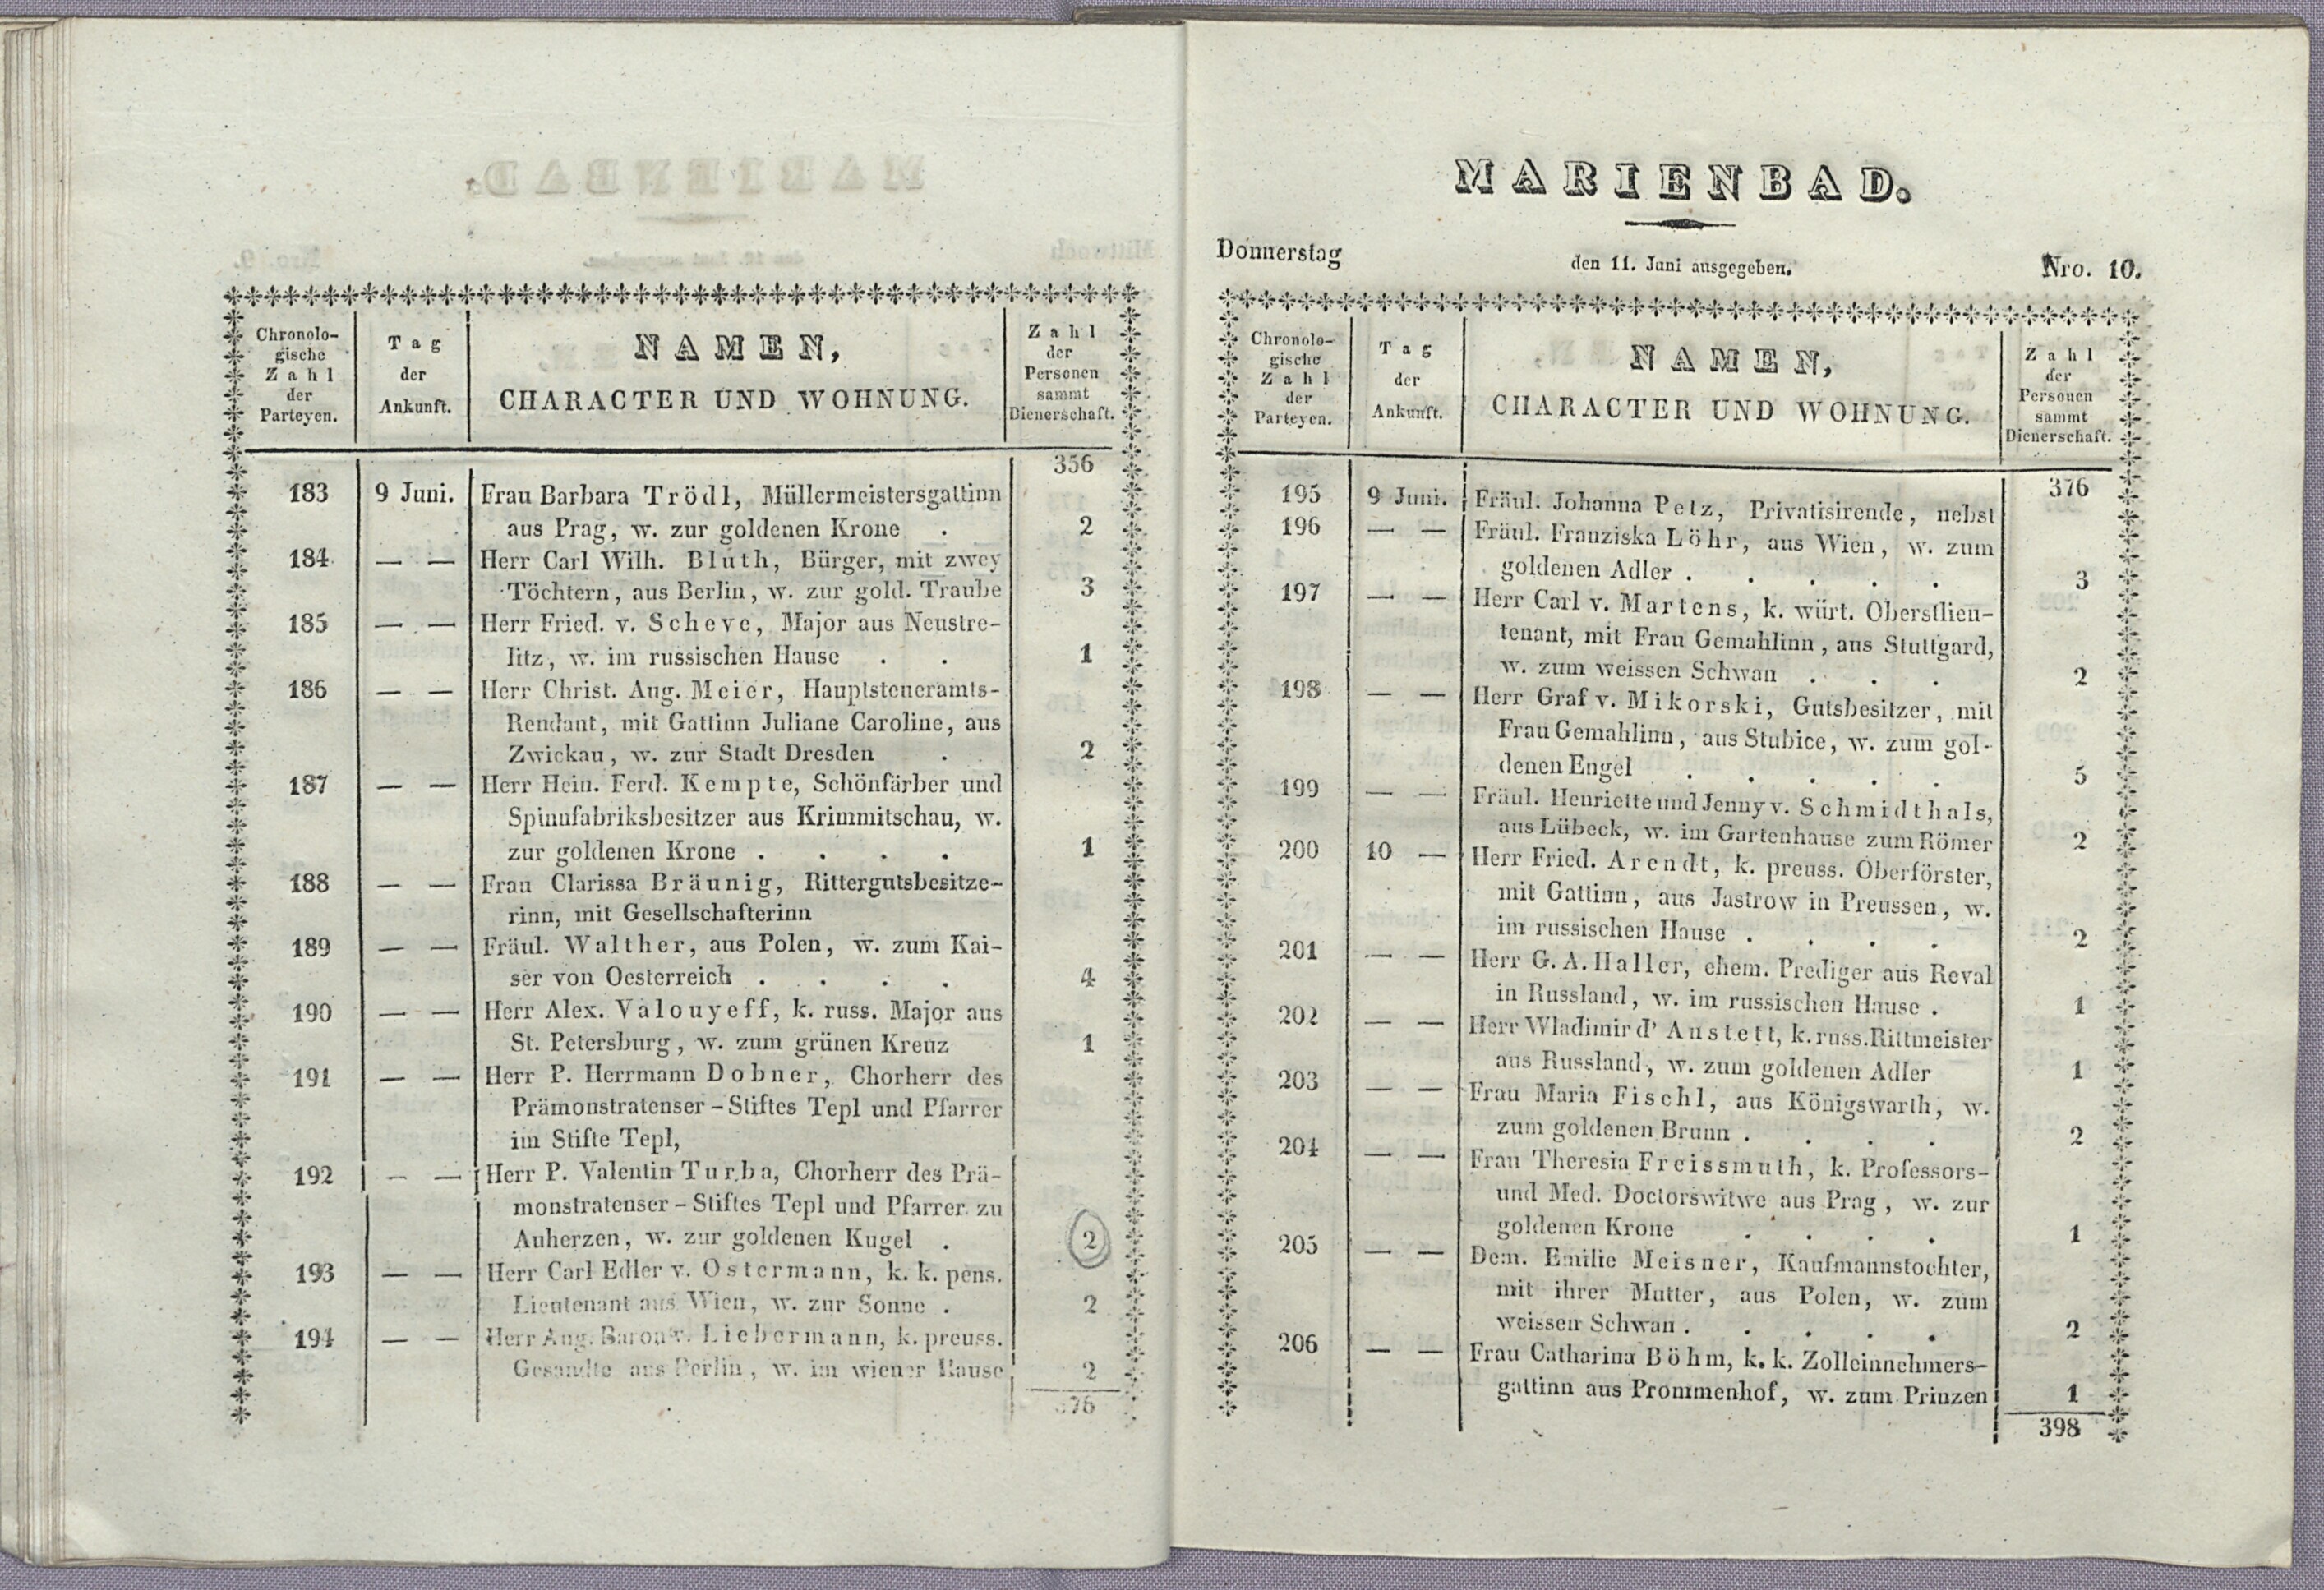 Chronolo-
gische
Zahl
der
Parteyen.
Tag
der
Ankunft.
NAMEN,
CHARACTER UND WOHNUNG.
Zahl
der
Personen
sammt
Dienerschaft.
356
183 9 Juni. Frau Barbara Trödl, Müllermeistersgattinn
aus Prag, w. zur goldenen Krone . 2
184 — — Herr Carl Wilh. Bluth, Bürger, mit zwey
Töchtern, aus Berlin, w. zur gold. Traube 3
185 — — Herr Fried. v. Scheve, Major aus Neustre-
litz, w. im russischen Hause . . 1
186 — — Herr Christ. Aug. Meier, Hauptsteueramts-
Rendant, mit Gattinn Juliane Caroline, aus
Zwickau, w. zur Stadt Dresden . 2
187 — — Herr Hein. Ferd. Kempte, Schönfärber und
Spinnfabriksbesitzer aus Krimmitschau, w.
zur goldenen Krone . . . . 1
188 — — Frau Clarissa Bräunig, Rittergutsbesitze-
rinn, mit Gesellschafterinn
189 — — Fräul. Walther, aus Polen, w. zum Kai-
ser von Oesterreich . . . . 4
190 — — Herr Alex. Valouyeff, k. russ. Major aus
St. Petersburg, w. zum grünen Kreuz 1
191 — — Herr P. Herrmann Dobner, Chorherr des
Prämonstratenser-Stiftes Tepl und Pfarrer
im Stifte Tepl,
192 — — Herr P. Valentin Turba, Chorherr des Prä-
monstratenser-Stiftes Tepl und Pfarrer zu
Auherzen, w. zur goldenen Kugel . 2
193 — — Herr Carl Edler v. Ostermann, k. k. pens.
Lieutenant aus Wien, w. zur Sonne . 2
194 — — Herr Aug. Baron v. Liebermann, k. preuss.
Gesandte aus Berlin, w. im wiener Hause 2
376
MARIENBAD.
Donnerstag den 11. Juni ausgegeben. Nro. 10.
Chronolo-
gische
Zahl
der
Parteyen.
Tag
der
Ankunft.
NAMEN,
CHARACTER UND WOHNUNG.
Zahl
der
Personen
sammt
Dienerschaft.
376
195 9 Juni. Fräul. Johanna Petz, Privatisirende, nebst
196 — — Fräul. Franziska Löhr, aus Wien, w. zum
goldenen Adler . . . . . 3
197 — — Herr Carl v. Martens, k. würt. Oberstlieu-
tenant, mit Frau Gemahlinn, aus Stuttgard,
w. zum weissen Schwan . . . 2
198 — — Herr Graf v. Mikorski, Gutsbesitzer, mit
Frau Gemahlinn, aus Stubice, w. zum gol-
denen Engel . . . . . 5
199 — — Fräul. Henriette und Jenny v. Schmidthals,
aus Lübeck, w. im Gartenhause zum Römer 2
200 10 — Herr Fried. Arendt, k. preuss. Oberförster,
mit Gattinn, aus Jastrow in Preussen, w.
im russischen Hause . . . . 2
201 — — Herr G. A. Haller, ehem. Prediger aus Reval
in Russland, w. im russischen Hause . 1
202 — — Herr Wladimir d'Anstett, k. russ. Rittmeister
aus Russland, w. zum goldenen Adler 1
203 — — Frau Maria Fischl, aus Königswarth, w.
zum goldenen Brunn . . . . 2
204 — — Frau Theresia Freissmuth, k. Professors-
und Med. Doctorswitwe aus Prag, w. zur
goldenen Krone . . . . 1
205 — — Dem. Emilie Meisner, Kaufmannstochter,
mit ihrer Mutter, aus Polen, w. zum
weissen Schwan . . . . . 2
206 — — Frau Catharina Böhm, k. k. Zolleinnehmers-
gattinn aus Prommenhof, w. zum Prinzen 1
398